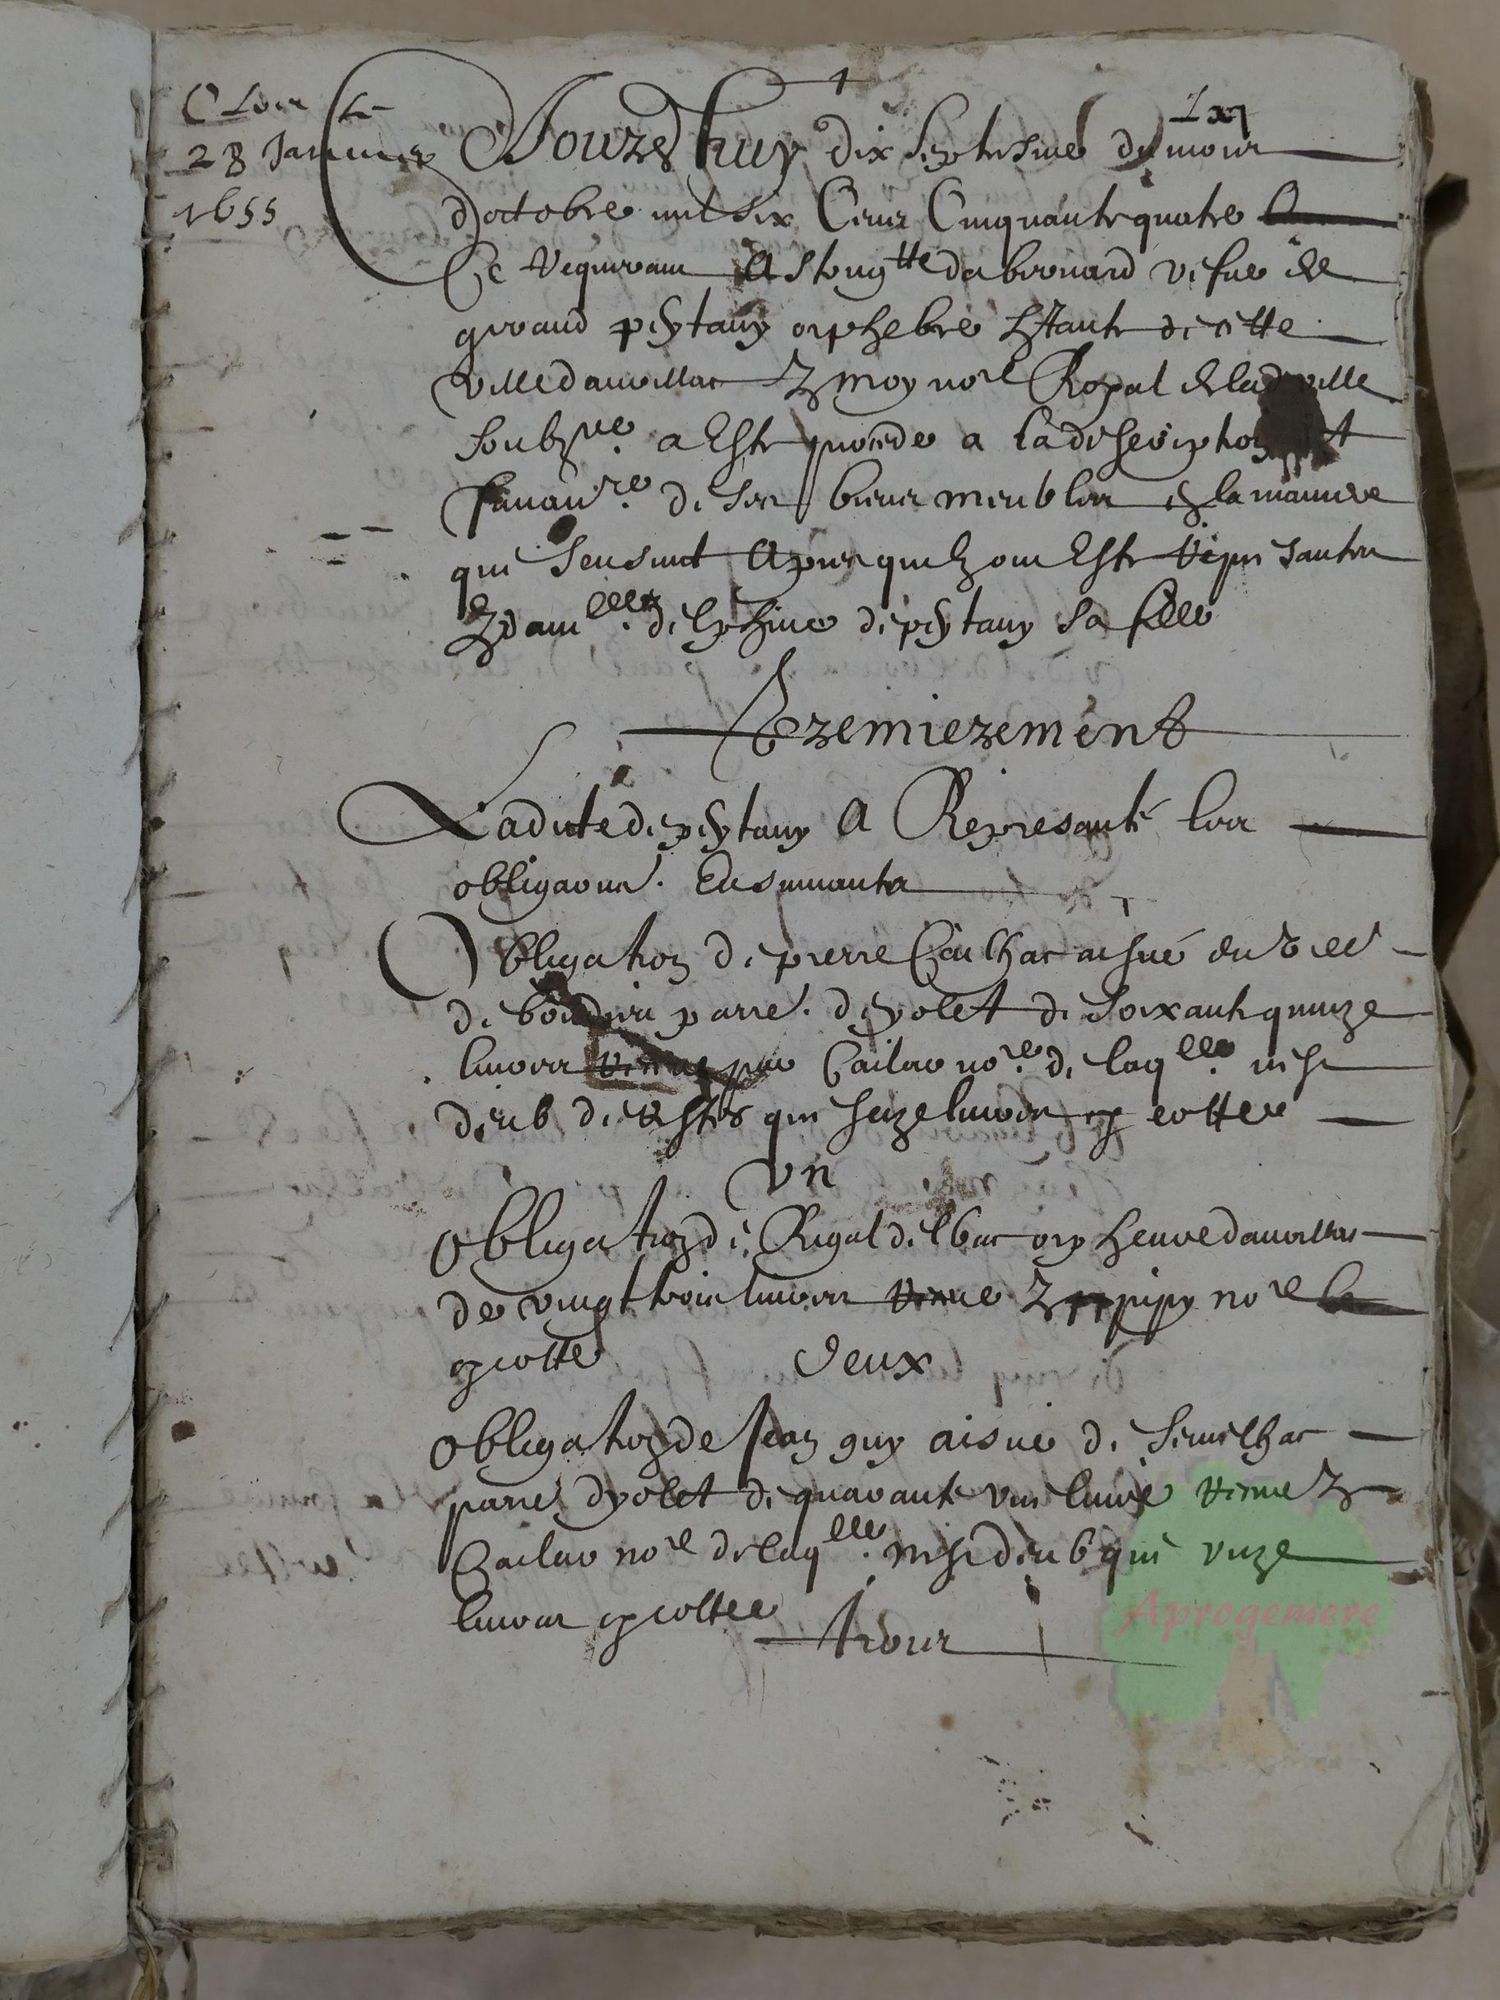 Clos le
28 Janvier
1655
Aujourdhuy dix septiesme du mois
doctobre mil six Cens Cinquante quatre
Ce requerant Astorg.tte dabernard vefue de
guiraud peytavy orphebvre hitante de cette
ville daurillac & moy no.re Royal de lad ville
soubz.ne a Esté procedé a la description et
Invan.re de ses biens meubles en la maniere
qui sensuit Apres quilz ont Esté represantes
dam.lle delphine de peytavy sa fille
Premierement
Ladite de peytavy A Represanté les
obligaons. Ensuivantes
Obligation de pierre Cailhac aisné du
de parre. dyolet de soixante quinze
livres par Cailar no.re de laq.lle nest
deub de reste que seze livres en cottee
vn
obligation de Rigal delbac orpheuvre daurillac
de vingt trois livres no.re
en cotte deux
obligation de Jean guy aisné de Semilhac
parre dyolet de quarante vne livre
Cailar no.re de laq.lle nest deub que vnze
livres en cottee
trois
Aprogemere